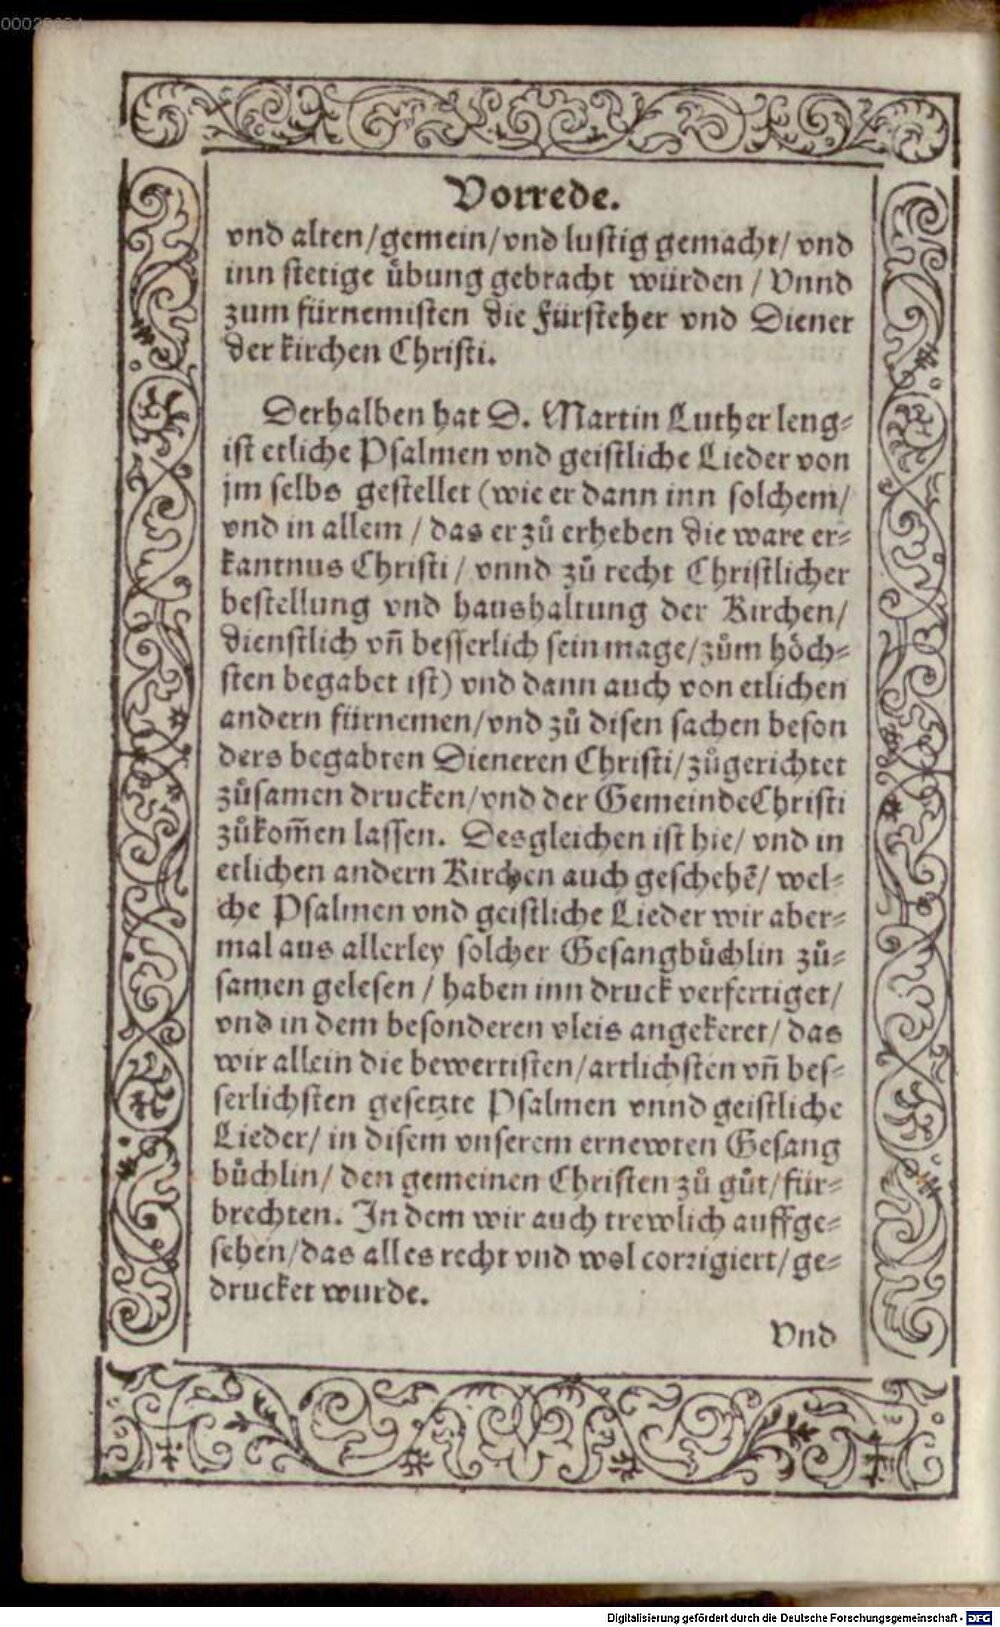 Vorrede.
vnd alten/gemein/vnd lustig gemacht/ vnd
inn stetige übung gebracht würden / Vnnd
zum fürnemisten die Fürsteher vnd Diener
der kirchen Christi.
Derhalben hat D. Martin Luther leng-
ist etliche Psalmen vnd geistliche Lieder von
jm selbs gestellet (wie er dann inn solchem/
vnd in allem / das er zů erheben die ware er-
kantnus Christi / vnnd zů recht Christlicher
bestellung vnd haushaltung der Kirchen/
dienstlich vn̄ besserlich sein mage/zům höch-
sten begabet ist) vnd dann auch von etlichen
andern fürnemen/vnd zů disen sachen beson
ders begabten Dieneren Christi/zůgerichtet
zůsamen drucken/vnd der GemeindeChristi
zůkom̄en lassen. Desgleichen ist hie/ vnd in
etlichen andern Kirchen auch geschehē/ wel-
che Psalmen vnd geistliche Lieder wir aber-
mal aus allerley solcher Gesangbüchlin zů-
samen gelesen / haben inn druck verfertiget/
vnd in dem besonderen vleis angekeret/ das
wir allein die bewertisten/artlichsten vn̄ bes-
serlichsten gesetzte Psalmen vnnd geistliche
Lieder/ in disem vnserem ernewten Gesang
büchlin/ den gemeinen Christen zů gůt/für-
brechten. In dem wir auch trewlich auffge-
sehen/das alles recht vnd wol corrigiert/ge-
drucket wurde.
Vnd
Digitalisierung gefördert durch die Deutsche Forschungsgemeinschaft - DFG